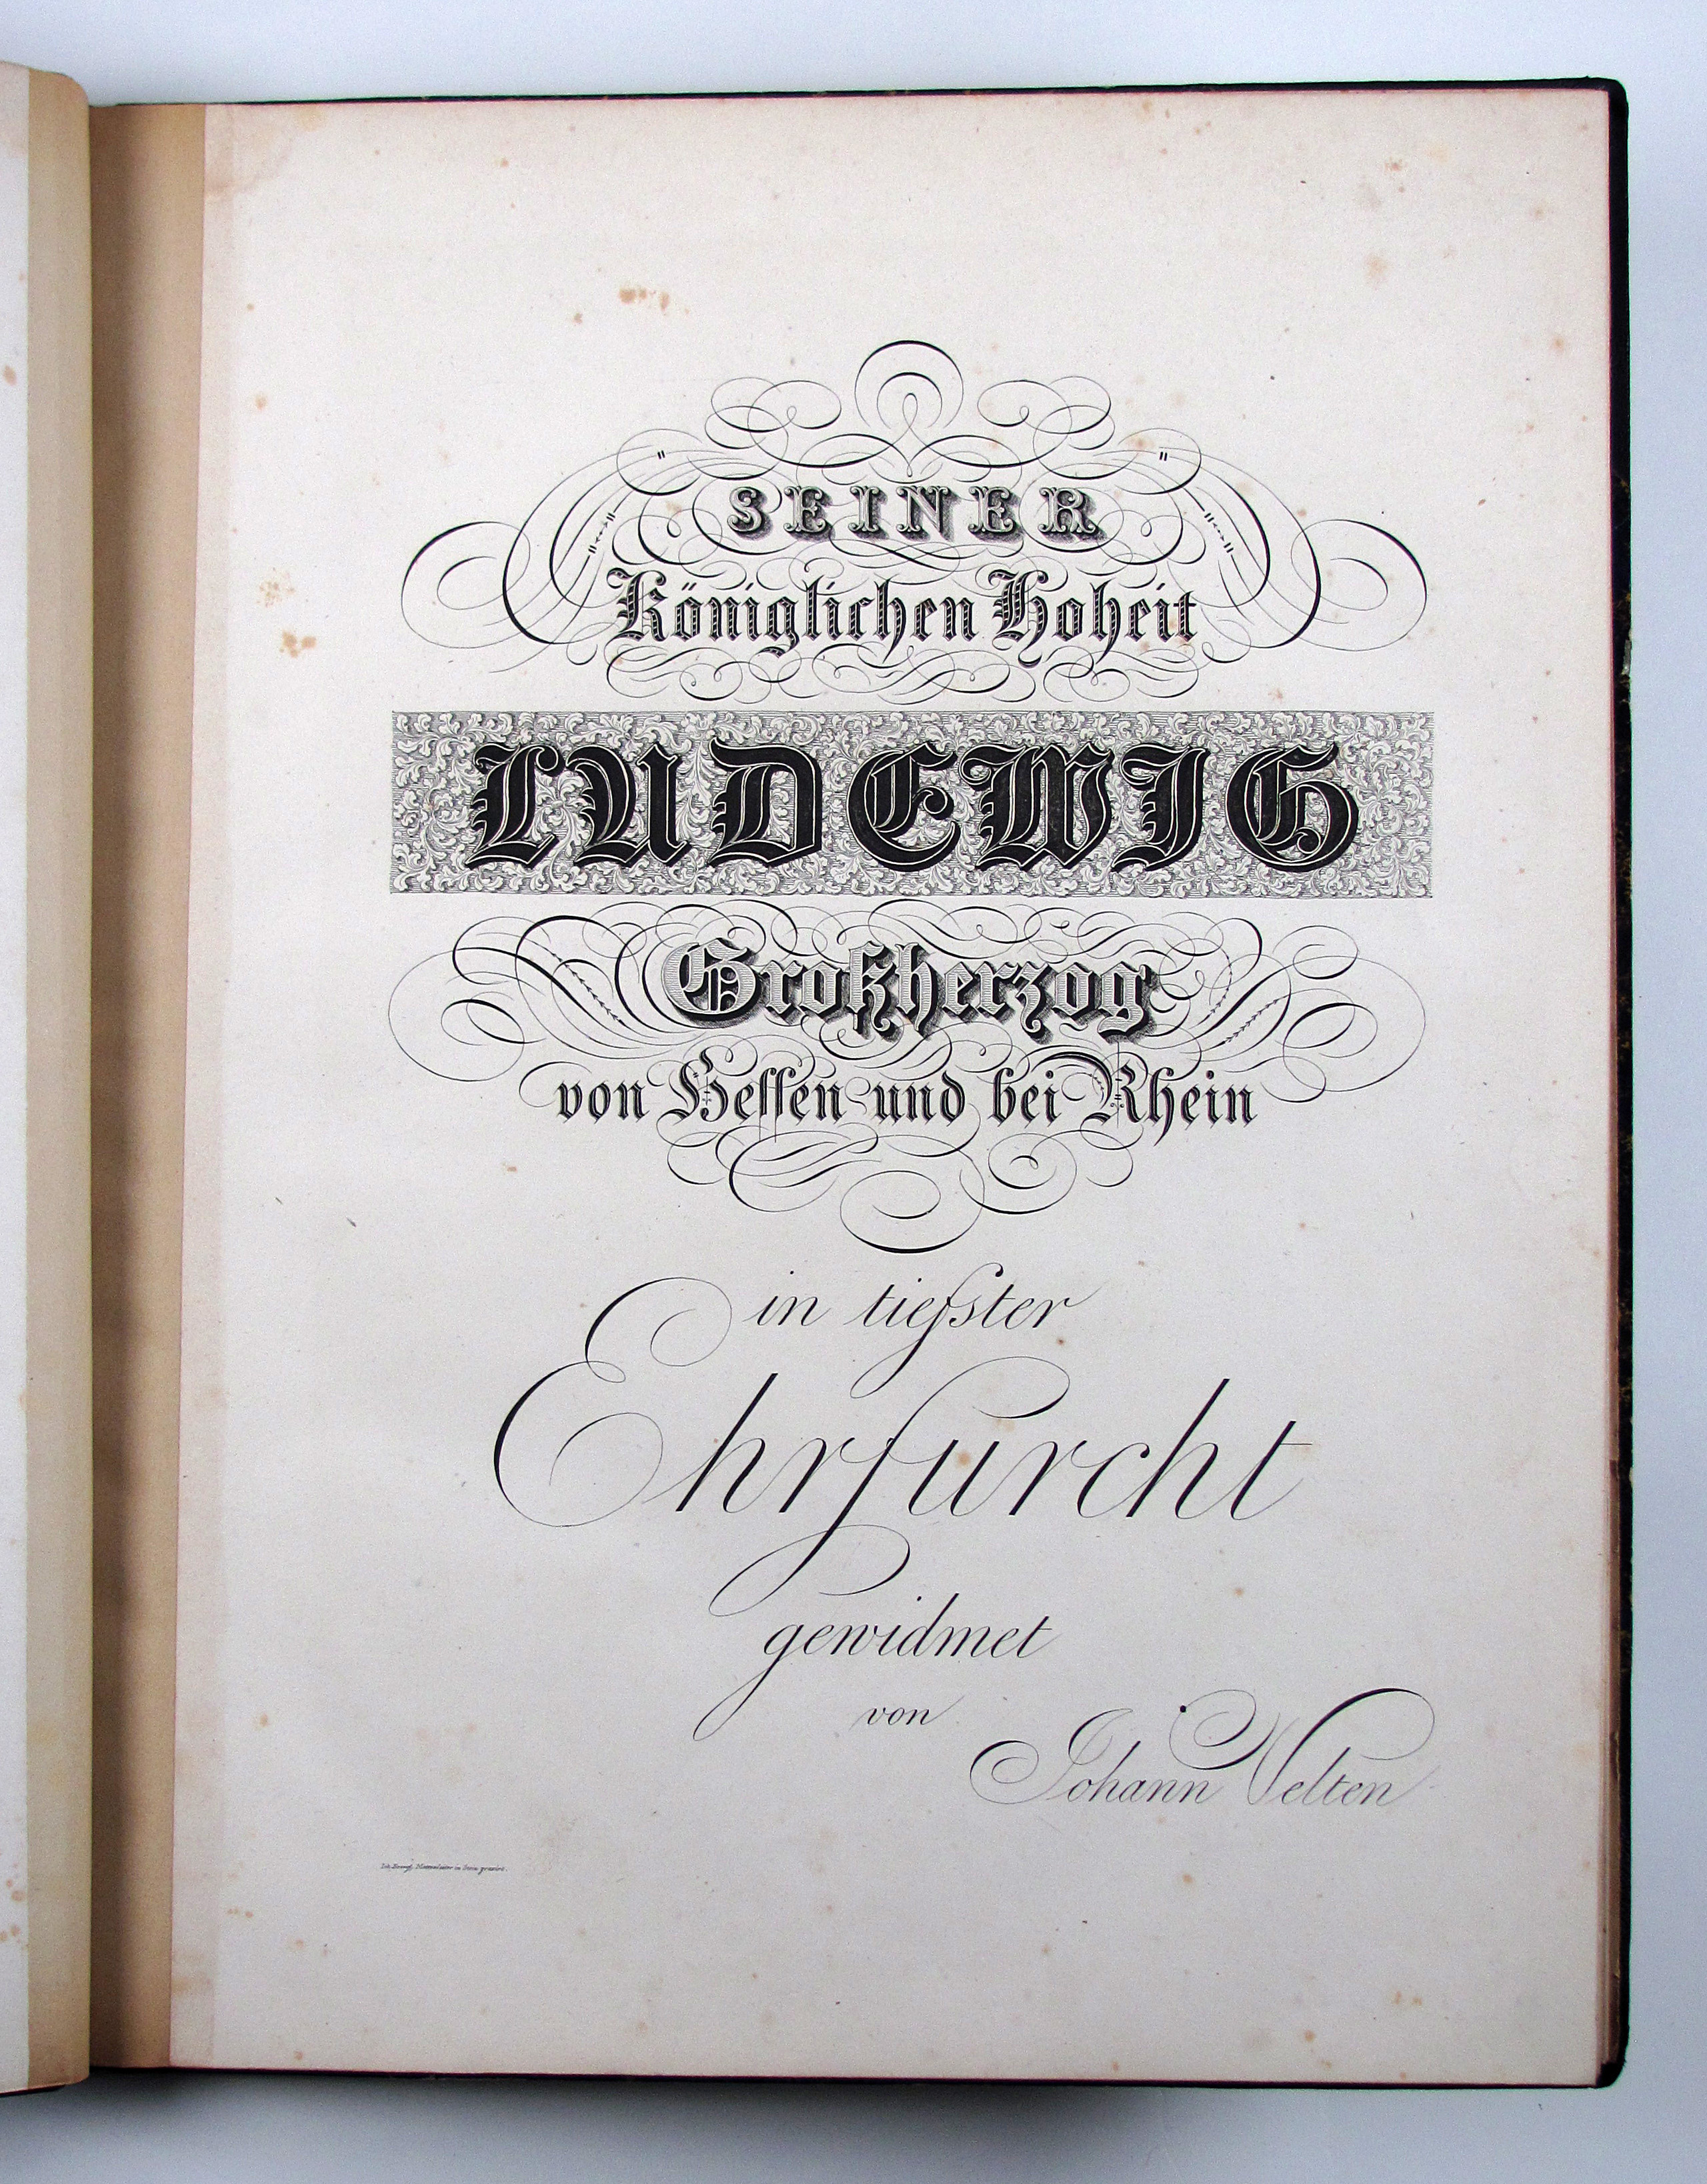 SEINER
Königlichen Hoheit
LUDEWIG
Großherzog
von Hessen und bei Rhein
in tiefster
Ehrfurcht
gewidmet
von
Johann Velten
in Stein graviert.